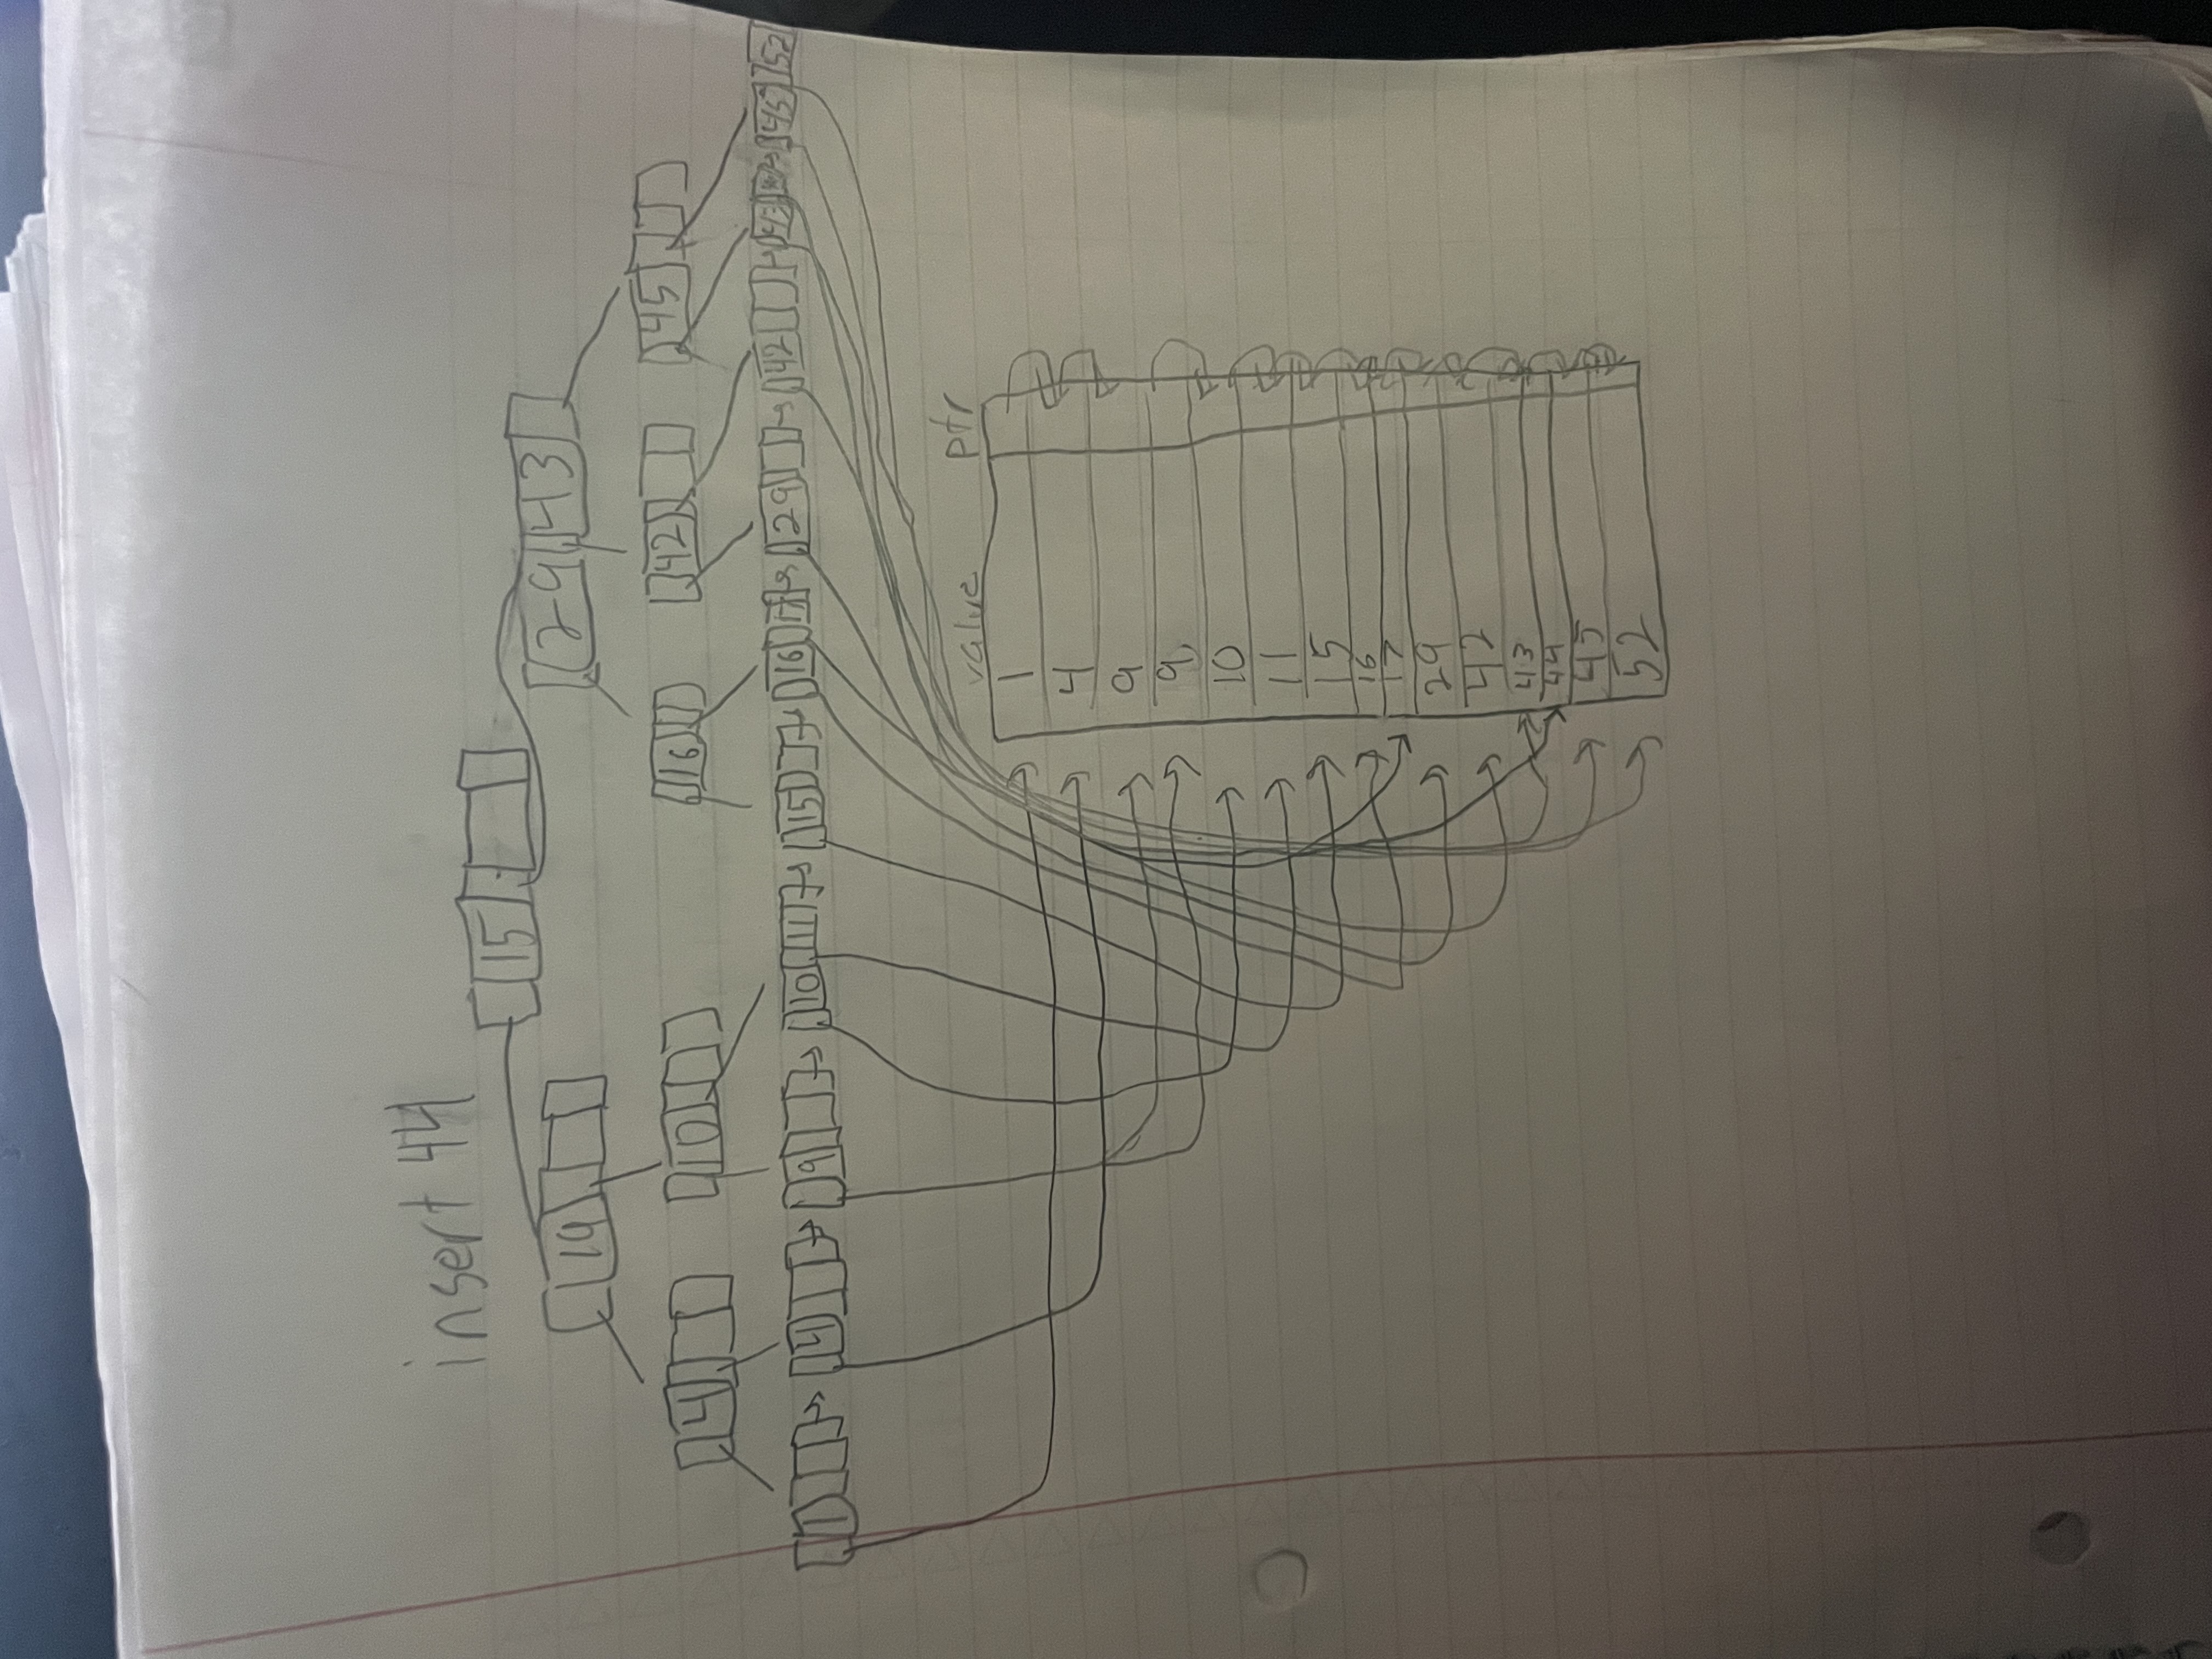 insert 44
15
19 29 43
4 10 16 42 45
1 4 9 10 11 15 16 17 29 42 43 45 52
value ptr
1
4
9
9
10
11
15
16
17
29
42
43
44
45
52